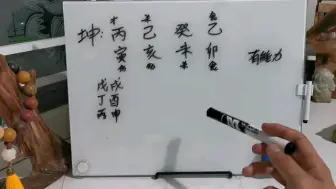 才
坤: 丙 己 癸 乙
寅 亥 未 卯
有能力
戊 戌
丁 酉
丙 申